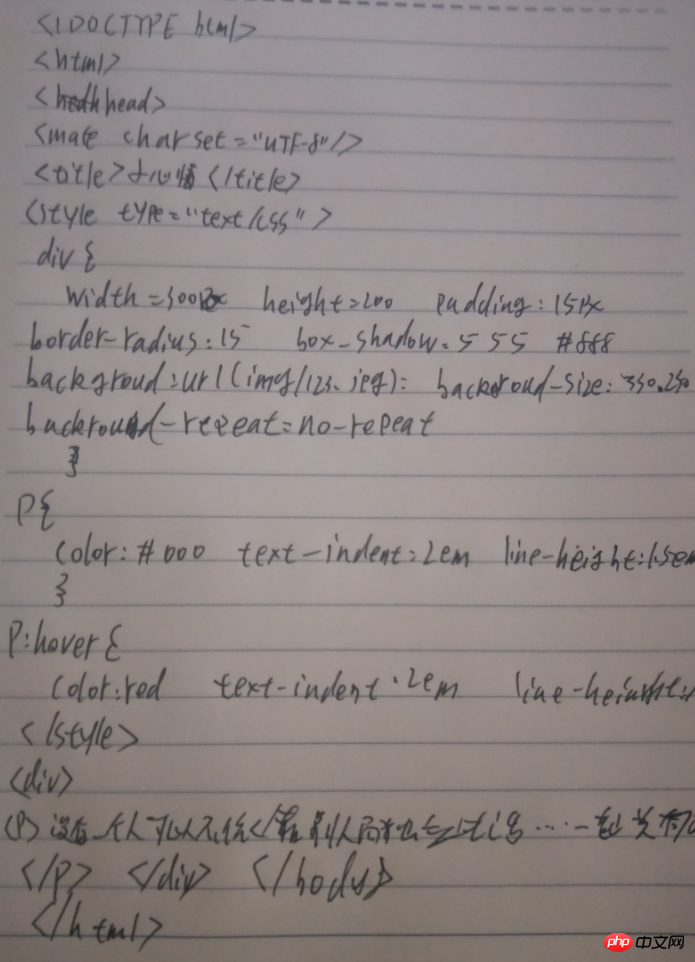 <!DOCTYPE html>
<html>
<head>
<mate charset="UTF-8"/>
<title>小心情</title>
<style type="text/css">
div{
width=300px height=200 padding:15px
border-radius:15 box-shadow:5 5 5 #888
backgroud:url(img/123.jpg): backgroud-size:350.250
backround-repeat=no-repeat
}
p{
color:#000 text-indent:2em line-height:1.5em
}
P:hover{
color:red text-indent:2em line-height:
</style>
<div>
<p>没有一个人可以不依靠别人而
</p> </div> </body>
</html>
php 中文网